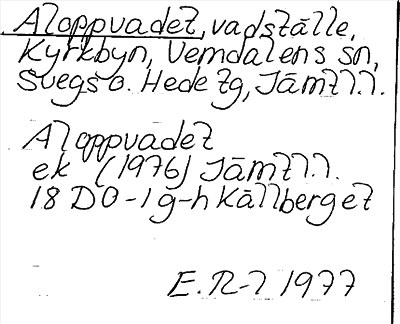 Aloppvadet, vadställe,
Kyrkbyn, Vemdalens sn,
Svegs o. Hede tg, Jämtl.l.
Aloppvadet
ek (1976) Jämtl.l.
18 D0-1 g-h Källberget
E.R-l 1977